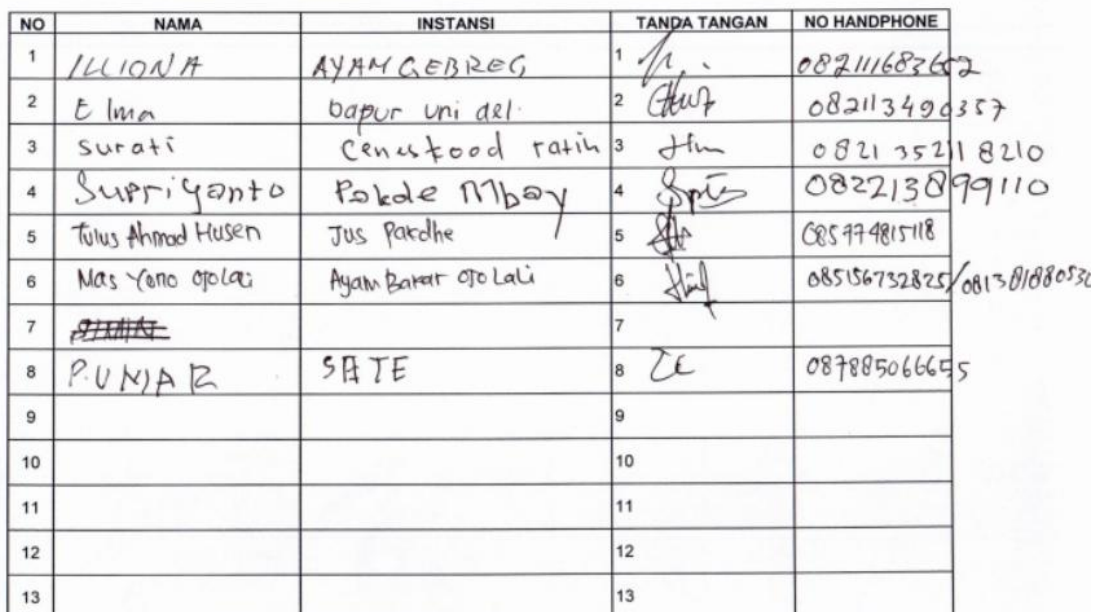 NO NAMA INSTANSI TANDA TANGAN NO HANDPHONE
1 ILLIONA AYAM GEBREG 1 082111683652
2 Elma Dapur uni del. 2 082113490357
3 Surati ratih 3 0821 35211 8210
4 Supriyanto Pakde Mbay 4 082213899110
5 Tulus Ahmad Husen Jus Pakdhe 5 085774815118
6 Mas Yono Ojolali Ayam Bakar OJO Lali 6 085156732825/081381880530
7 7
8 P. UNIAR SATE 8 087885066655
9 9
10 10
11 11
12 12
13 13